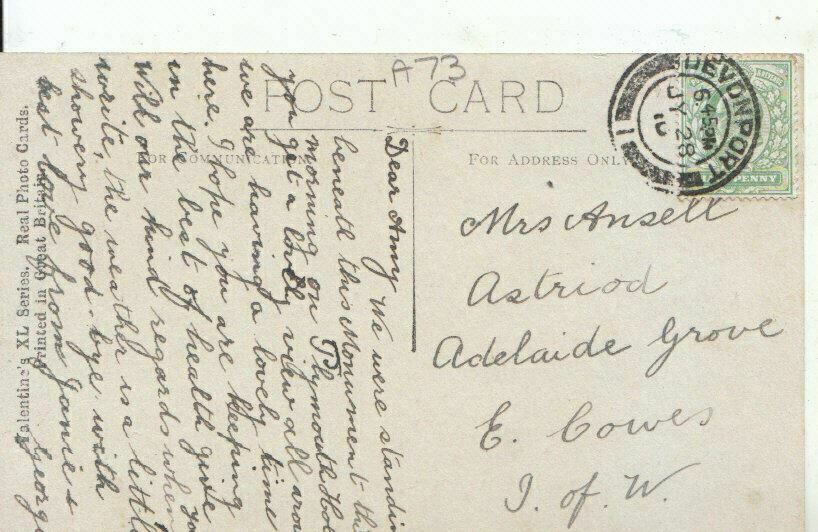 A73
POST CARD
FOR COMMUNICATION
FOR ADDRESS ONLY
DEVONPORT
6.45PM
JY 28
10
1
PENNY
Mrs Ansell
Astriod
Adelaide Grove
E. Cowes
I. of W.
Dear Amy We were standin
beneath this Monument this
morning on Plymouth Hoe
you get a lovely view all aroun
we are having a lovely time
here. I hope you are keeping
in the best of health give you
with our kind regards when
write, the weather is a little
showery good-bye with
best love from Janie &
George
Valentine's XL Series. Real Photo Cards.
Printed in Great Britain